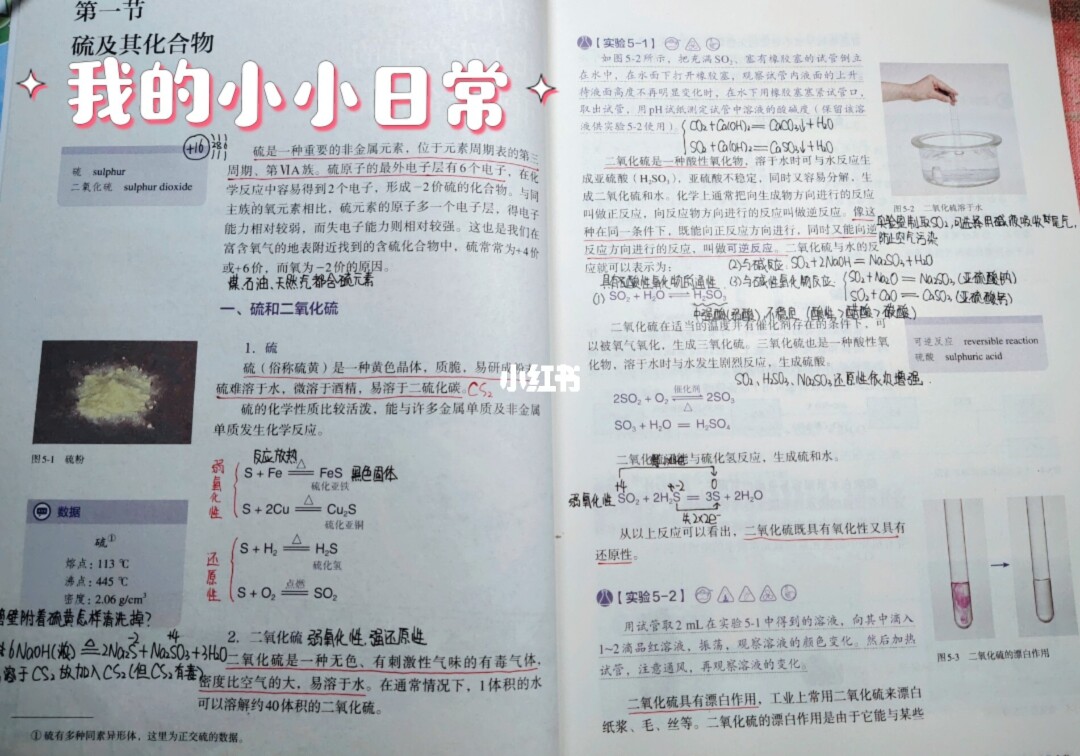 第一节
硫及其化合物
我的小小日常
硫 sulphur
二氧化硫 sulphur dioxide
+16 2 8 6
硫是一种重要的非金属元素，位于元素周期表的第三
周期、第ⅥA族。硫原子的最外电子层有6个电子，在化
学反应中容易得到2个电子，形成－2价硫的化合物。与同
主族的氧元素相比，硫元素的原子多一个电子层，得电子
能力相对较弱，而失电子能力则相对较强。这也是我们在
富含氧气的地表附近找到的含硫化合物中，硫常常为+4价
或+6价，而氧为－2价的原因。
煤、石油、天然气都含硫元素
一、硫和二氧化硫
1. 硫
硫（俗称硫黄）是一种黄色晶体，质脆，易研成
硫难溶于水，微溶于酒精，易溶于二硫化碳。CS₂
硫的化学性质比较活泼，能与许多金属单质及非金属
单质发生化学反应。
图5-1 硫粉
反应放热
弱氧化性
S + Fe =△= FeS 黑色固体
硫化亚铁
S + 2Cu =△= Cu₂S
硫化亚铜
还原性
S + H₂ =△= H₂S
硫化氢
S + O₂ =点燃= SO₂
数据
硫①
熔点：113 ℃
沸点：445 ℃
密度：2.06 g/cm³
壁附着硫黄怎样清洗掉？
6NaOH(浓) =△= 2Na₂S + Na₂SO₃ + 3H₂O
-2 +4
溶于CS₂ 故加入CS₂（但CS₂有毒）
2. 二氧化硫 弱氧化性 强还原性
二氧化硫是一种无色、有刺激性气味的有毒气体，
密度比空气的大，易溶于水。在通常情况下，1体积的水
可以溶解约40体积的二氧化硫。
①硫有多种同素异形体，这里为正交硫的数据。
【实验5-1】
如图5-2所示，把充满SO₂、塞有橡胶塞的试管倒立
在水中，在水面下打开橡胶塞，观察试管内液面的上升。
待液面高度不再明显变化时，在水下用橡胶塞塞紧试管口，
取出试管，用pH试纸测定试管中溶液的酸碱度（保留该溶
液供实验5-2使用）。
CO₂ + Ca(OH)₂ = CaCO₃↓ + H₂O
SO₂ + Ca(OH)₂ = CaSO₃↓ + H₂O
二氧化硫是一种酸性氧化物，溶于水时可与水反应生
成亚硫酸（H₂SO₃），亚硫酸不稳定，同时又容易分解，生
成二氧化硫和水。化学上通常把向生成物方向进行的反应
叫做正反应，向反应物方向进行的反应叫做逆反应。像这
种在同一条件下，既能向正反应方向进行，同时又能向逆
反应方向进行的反应，叫做可逆反应。二氧化硫与水的反
应就可以表示为：
图5-2 二氧化硫溶于水
防止空气污染
(2)与碱反应：SO₂ + 2NaOH = Na₂SO₃ + H₂O
具有酸性氧化物的通性 (3)与碱性氧化物反应：
SO₂ + Na₂O = Na₂SO₃（亚硫酸钠）
SO₂ + CaO = CaSO₃（亚硫酸钙）
(1) SO₂ + H₂O ⇌ H₂SO₃
中强酸(弱酸)，不稳定（酸性＞醋酸＞碳酸）
二氧化硫在适当的温度并有催化剂存在的条件下，可
以被氧气氧化，生成三氧化硫。三氧化硫也是一种酸性氧
化物，溶于水时与水发生剧烈反应，生成硫酸。
可逆反应 reversible reaction
硫酸 sulphuric acid
SO₂、H₂SO₃、Na₂SO₃还原性依次增强．
2SO₂ + O₂ 催化剂⇌△ 2SO₃
SO₃ + H₂O = H₂SO₄
小红书
二氧化硫能与硫化氢反应，生成硫和水。
+4 -2 0
弱氧化性 SO₂ + 2H₂S = 3S + 2H₂O
失2×2e⁻
从以上反应可以看出，二氧化硫既具有氧化性又具有
还原性。
【实验5-2】
用试管取2 mL在实验5-1中得到的溶液，向其中滴入
1~2滴品红溶液，振荡，观察溶液的颜色变化。然后加热
试管，注意通风，再观察溶液的变化。
图5-3 二氧化硫的漂白作用
二氧化硫具有漂白作用，工业上常用二氧化硫来漂白
纸浆、毛、丝等。二氧化硫的漂白作用是由于它能与某些